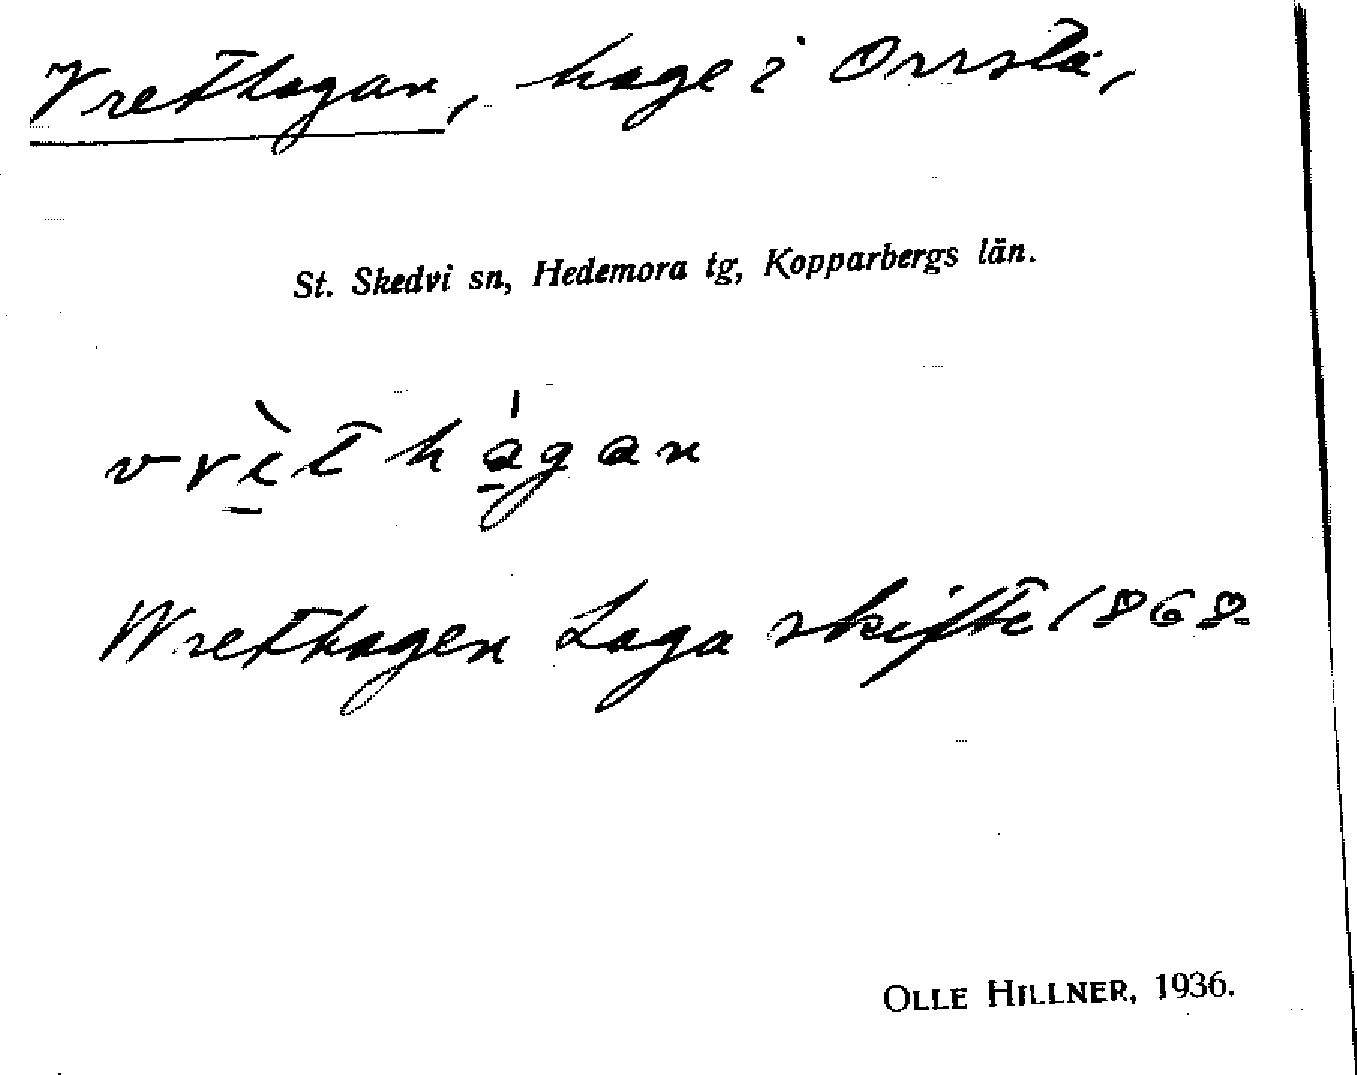 Vrethagan, hage i Orrsta,
St. Skedvi sn, Hedemora tg, Kopparbergs län.
vrèt hágan
Wrethagen Laga skifte 1868.
OLLE HILLNER, 1936.